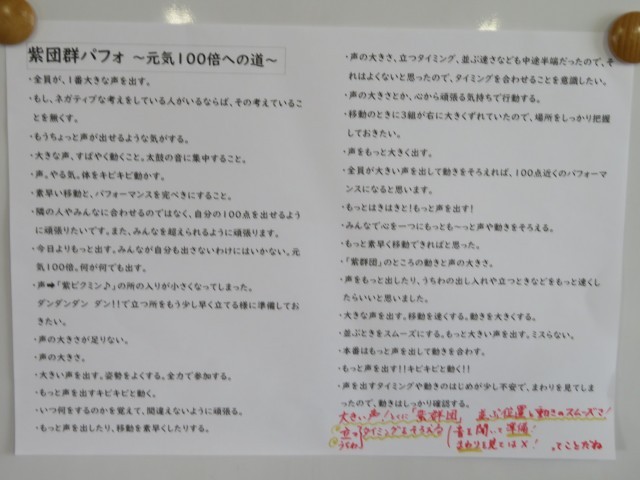 紫団群パフォ ～元気100倍への道～
・全員が、1番大きな声を出す。
・もし、ネガティブな考えをしている人がいるならば、その考えているこ
とを無くす。
・もうちょっと声が出せるような気がする。
・大きな声、すばやく動くこと。太鼓の音に集中すること。
・声。やる気。体をキビキビ動かす。
・素早い移動と、パフォーマンスを完ぺきにすること。
・隣の人やみんなに合わせるのではなく、自分の100点を出せるよう
に頑張りたいです。また、みんなを超えられるように頑張ります。
・今日よりもっと出す。みんなが自分も出さないわけにはいかない。元
気100倍。何が何でも出す。
・声➡「紫ビクミン♪」の所の入りが小さくなってしまった。
ダンダンダン ダン!!で立つ所をもう少し早く立てる様に準備してお
きたい。
・声の大きさが足りない。
・声の大きさ。
・大きい声を出す。姿勢をよくする。全力で参加する。
・もっと声を出すキビキビと動く。
・いつ何をするのかを覚えて、間違えないように頑張る。
・もっと声を出したり、移動を素早くしたりする。
・声の大きさ、立つタイミング、並ぶ速さなども中途半端だったので、そ
れはよくないと思ったので、タイミングを合わせることを意識したい。
・声の大きさとか、心から頑張る気持ちで行動する。
・移動のときに3組が右に大きくずれていたので、場所をしっかり把握
しておきたい。
・声をもっと大きく出す。
・全員が大きい声を出して動きをそろえれば、100点近くのパフォーマ
ンスになると思います。
・もっとはきはきと!もっと声を出す!
・みんなで心を一つにもっとも～っと声や動きをそろえる。
・もっと素早く移動できればと思った。
・「紫群団」のところの動きと声の大きさ。
・声をもっと出したり、うちわの出し入れや立つときなどをもっと速くし
たらいいと思いました。
・大きな声を出す。移動を速くする。動きを大きくする。
・並ぶときをスムーズにする。もっと大きい声を出す。ミスらない。
・本番はもっと声を出して動きを合わす。
・もっと声を出す!!キビキビと動く!!
・声を出すタイミングや動きのはじめが少し不安で、まわりを見てしま
ったので、動きはしっかり確認する。
大きい声!とくに「紫群団」 並ぶ位置と動きのスムーズさ!
うちわ タイミングをそろえる 音を聞いて準備!
まわりを見てはX! ってことだね